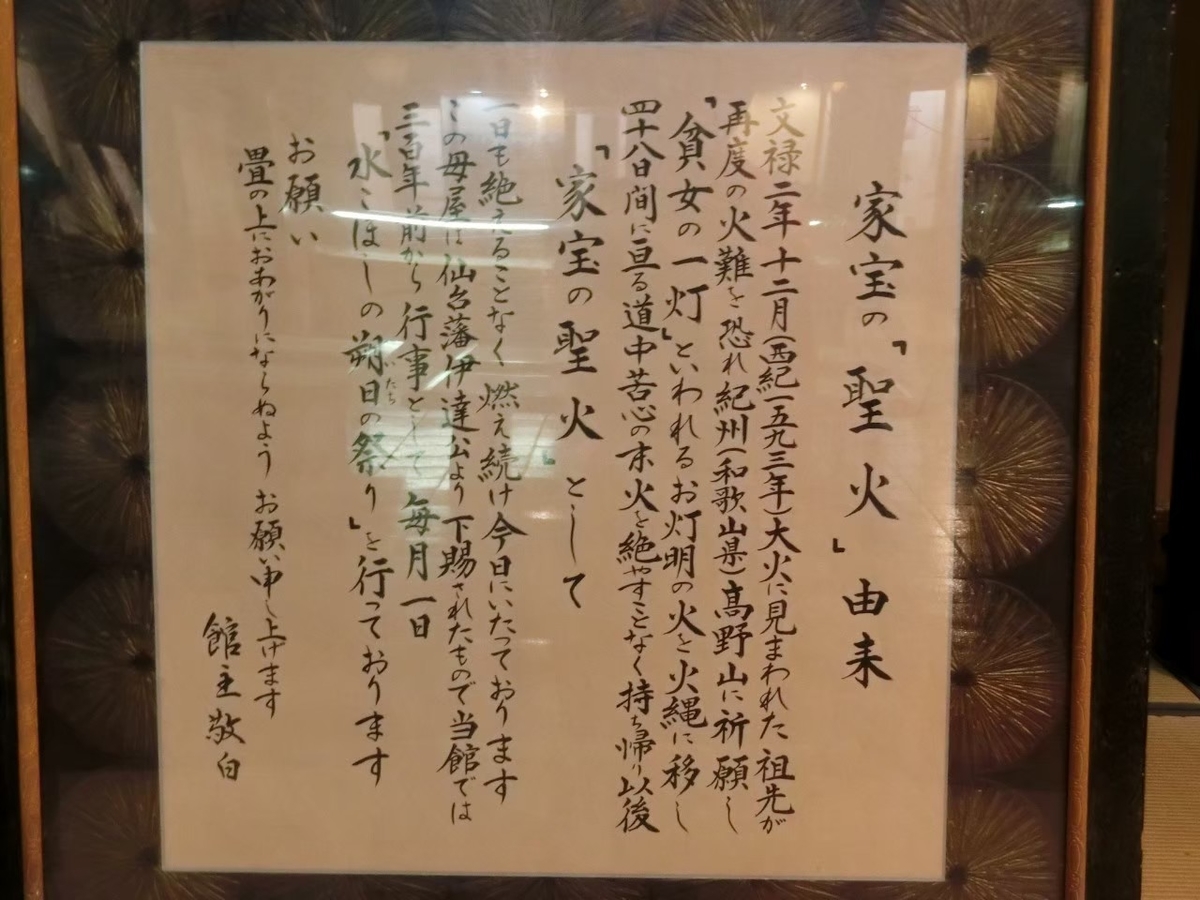 家宝の「聖火」由来
文禄二年十二月(西紀一五九三年)大火に見まわれた祖先が
再度の火難を恐れ紀州(和歌山県)高野山に祈願し
「貧女の一灯」といわれるお灯明の火を火縄に移し
四十八日間に亘る道中苦心の末火を絶やすことなく持ち帰り以後
「家宝の聖火」として
一日も絶えることなく燃え続け今日にいたっております
この母屋は仙台藩伊達公より下賜されたもので当館では
三百年前から行事として毎月一日
「水こぼしの朔日の祭り」を行っております
ついたち
お願い
畳の上におあがりにならぬようお願い申し上げます
館主敬白